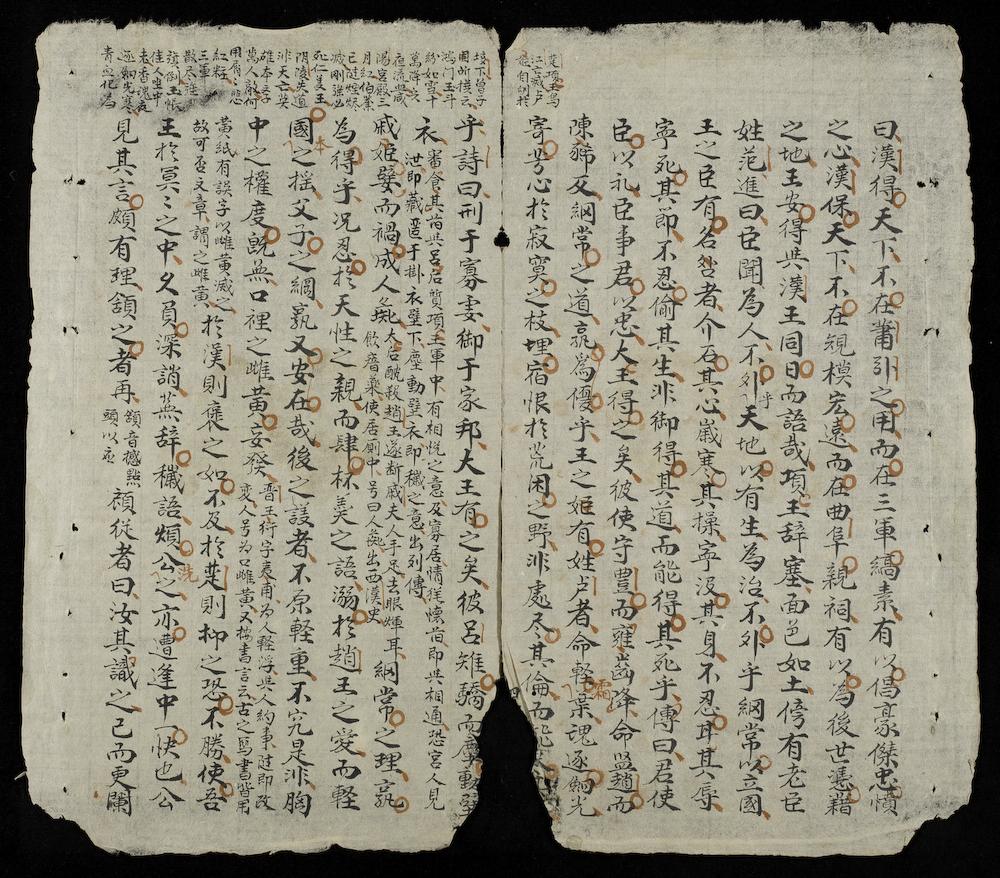 虞項王烏
江亡滅卢
姬自刎於
曰漢得天下不在蕭引之用而在三軍縞素有以倡豪傑忠憤
之心漢保天下不在規模宏遠而在曲阜親祠有以為後世憑藉
之地王安得共漢王同日而語哉項王辞塞面色如土傍有老臣
姓范進曰臣聞為人不外乎天地以有生為治不外乎綱常以立國
王之臣有名咎者介石其心歲寒其操寧没其身不忍耳其辱
寧死其節不忍偷其生非御得其道而能得其死乎傳曰君使
臣以礼臣事君以忠大王得之矣彼使守豊而雍齒降命監趙而
陳豨反綱常之道孰為優乎王之姬有姓卢者命輕霜葉魂逐劍光
寄芳心於寂寞之枝埋宿恨於荒困之野非處尽其倫而能
垓下曾子
鴻门玉斗
紛如雪十
萬降兵
夜流血咸
陽宮殿三
月紅伯業
已随煙燼
滅剛强必
死仁義王
陰陵失道
非天亡英
雄本学
萬人敵何
用屑〻悲
紅粧
三軍
散尽旌
旗倒玉帳
佳人坐中
老香魂夜
逐劍光寒
青血化為
乎詩曰刑于寡妻御于家邦大王有之矣彼呂雉驕而塵動壁
衣 審食其前共吕后質項王軍中有相悦之意及寡居情猶懷前即共相通恐宮人見
泄即藏匿于掛衣壁下塵動壁衣即穢之意出列傳
戚姬嬖而禍成人彘 太后酖殺趙王遂断戚夫人手足去眼煇耳
飲瘖藥使居厠中号曰人彘出西漢史 綱常之理孰
為得乎況忍於天性之親而肆杯羹之語溺於趙王之愛而軽
國本之搖父子之綱孰又安在哉後之議者不原軽重不究是非胸
中之權度既無口裡之雌黄妄發 晋王衍字夷甫为人軽浮共人約事过即改
変人号为口雌黄又按書言云古之寫書皆用
黄紙有誤字以雌黄滅之
故可否文章謂之雌黄 於漢則褒之如不及於楚則抑之恐不勝使吾
王於冥〻之中久負深誚蕪辞穢語煩公之洗亦遭逢中一快也公
見其言頗有理頷之者再 頷音撼點
頭以应 顧從者曰汝其識之已而更闌